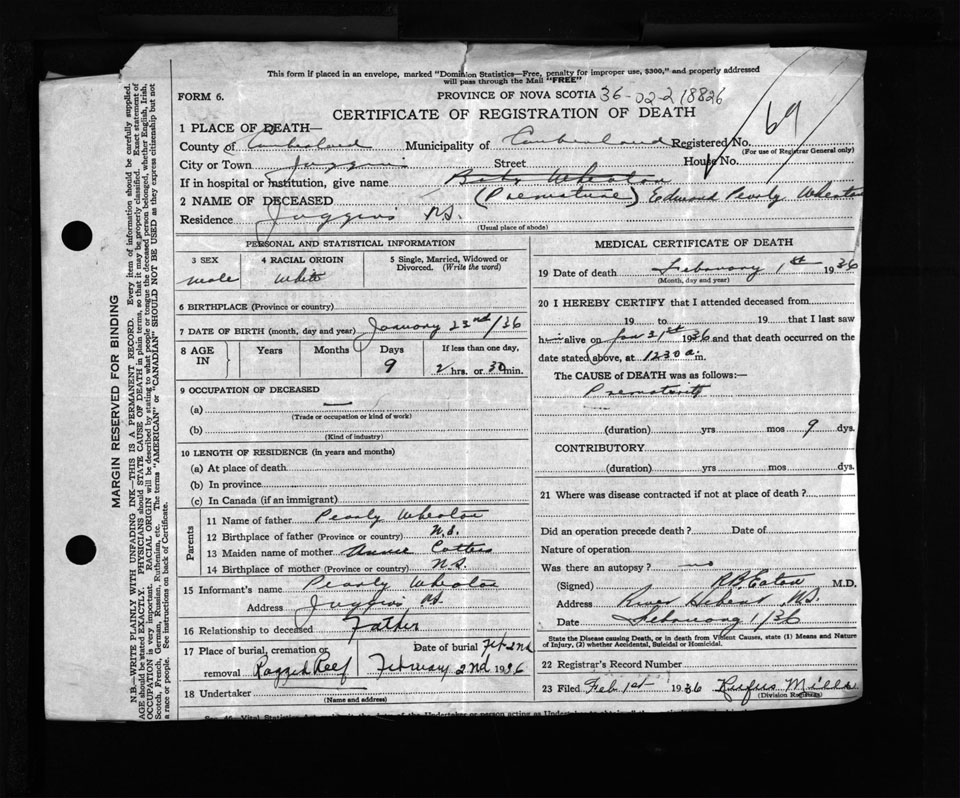 This form if placed in an envelope, marked "Dominion Statistics—Free, penalty for improper use, $300," and properly addressed
will pass through the Mail "FREE"
FORM 6.
PROVINCE OF NOVA SCOTIA 36-02-218826
CERTIFICATE OF REGISTRATION OF DEATH
69
1 PLACE OF DEATH—
County of Cumberland Municipality of Cumberland Registered No.
(For use of Registrar General only)
City or Town Joggins Street House No.
If in hospital or institution, give name Baby Wheaton
2 NAME OF DECEASED (Premature) Edward Pearly Wheaton
Residence Joggins N.S.
(Usual place of abode)
PERSONAL AND STATISTICAL INFORMATION
3 SEX 4 RACIAL ORIGIN 5 Single, Married, Widowed or
Divorced. (Write the word)
male White
6 BIRTHPLACE (Province or country)
7 DATE OF BIRTH (month, day and year) January 23rd/36
8 AGE IN Years Months Days If less than one day,
9 2 hrs. or 30 min.
9 OCCUPATION OF DECEASED
(a) —
(Trade or occupation or kind of work)
(b)
(Kind of industry)
10 LENGTH OF RESIDENCE (in years and months)
(a) At place of death
(b) In province
(c) In Canada (if an immigrant)
Parents
11 Name of father Pearly Wheaton
12 Birthplace of father (Province or country) N.S.
13 Maiden name of mother Annie
14 Birthplace of mother (Province or country) N.S.
15 Informant's name Pearly Wheaton
Address Joggins NS.
16 Relationship to deceased Father
17 Place of burial, cremation or Date of burial Feb 2nd
removal Ragged Reef February 2nd 1936
18 Undertaker
(Name and address)
MEDICAL CERTIFICATE OF DEATH
19 Date of death February 1st 1936
(Month, day and year)
20 I HEREBY CERTIFY that I attended deceased from
19 to 19 that I last saw
him alive on Jan 31st 1936 and that death occurred on the
date stated above, at 12 30 a m.
The CAUSE of DEATH was as follows:—
Prematurity
(duration) yrs mos 9 dys.
CONTRIBUTORY
(duration) yrs mos. dys.
21 Where was disease contracted if not at place of death?
Did an operation precede death? Date of
Nature of operation
Was there an autopsy? no
(Signed) R.B. Eaton M.D.
Address River Hebert, N.S.
Date February 1/36
State the Disease causing Death, or in death from Violent Causes, state (1) Means and Nature
of Injury, (2) whether Accidental, Suicidal or Homicidal.
22 Registrar's Record Number
23 Filed Feb 1st 1936 Rufus Mills
(Division Registrar)
MARGIN RESERVED FOR BINDING
N.B.—WRITE PLAINLY WITH UNFADING INK—THIS IS A PERMANENT RECORD. Every item of information should be carefully supplied.
AGE should be stated EXACTLY. PHYSICIANS should STATE CAUSE OF DEATH in plain terms, so that it may be properly classified. Exact statement of
OCCUPATION is very important. RACIAL ORIGIN will be described by stating to what people or tongue the deceased person belonged, whether English, Irish,
Scotch, French, German, Russian, Ruthenian, etc. The terms "AMERICAN" or "CANADIAN" SHOULD NOT BE USED as they express citizenship but not
a race or people. See instructions on back of Certificate.